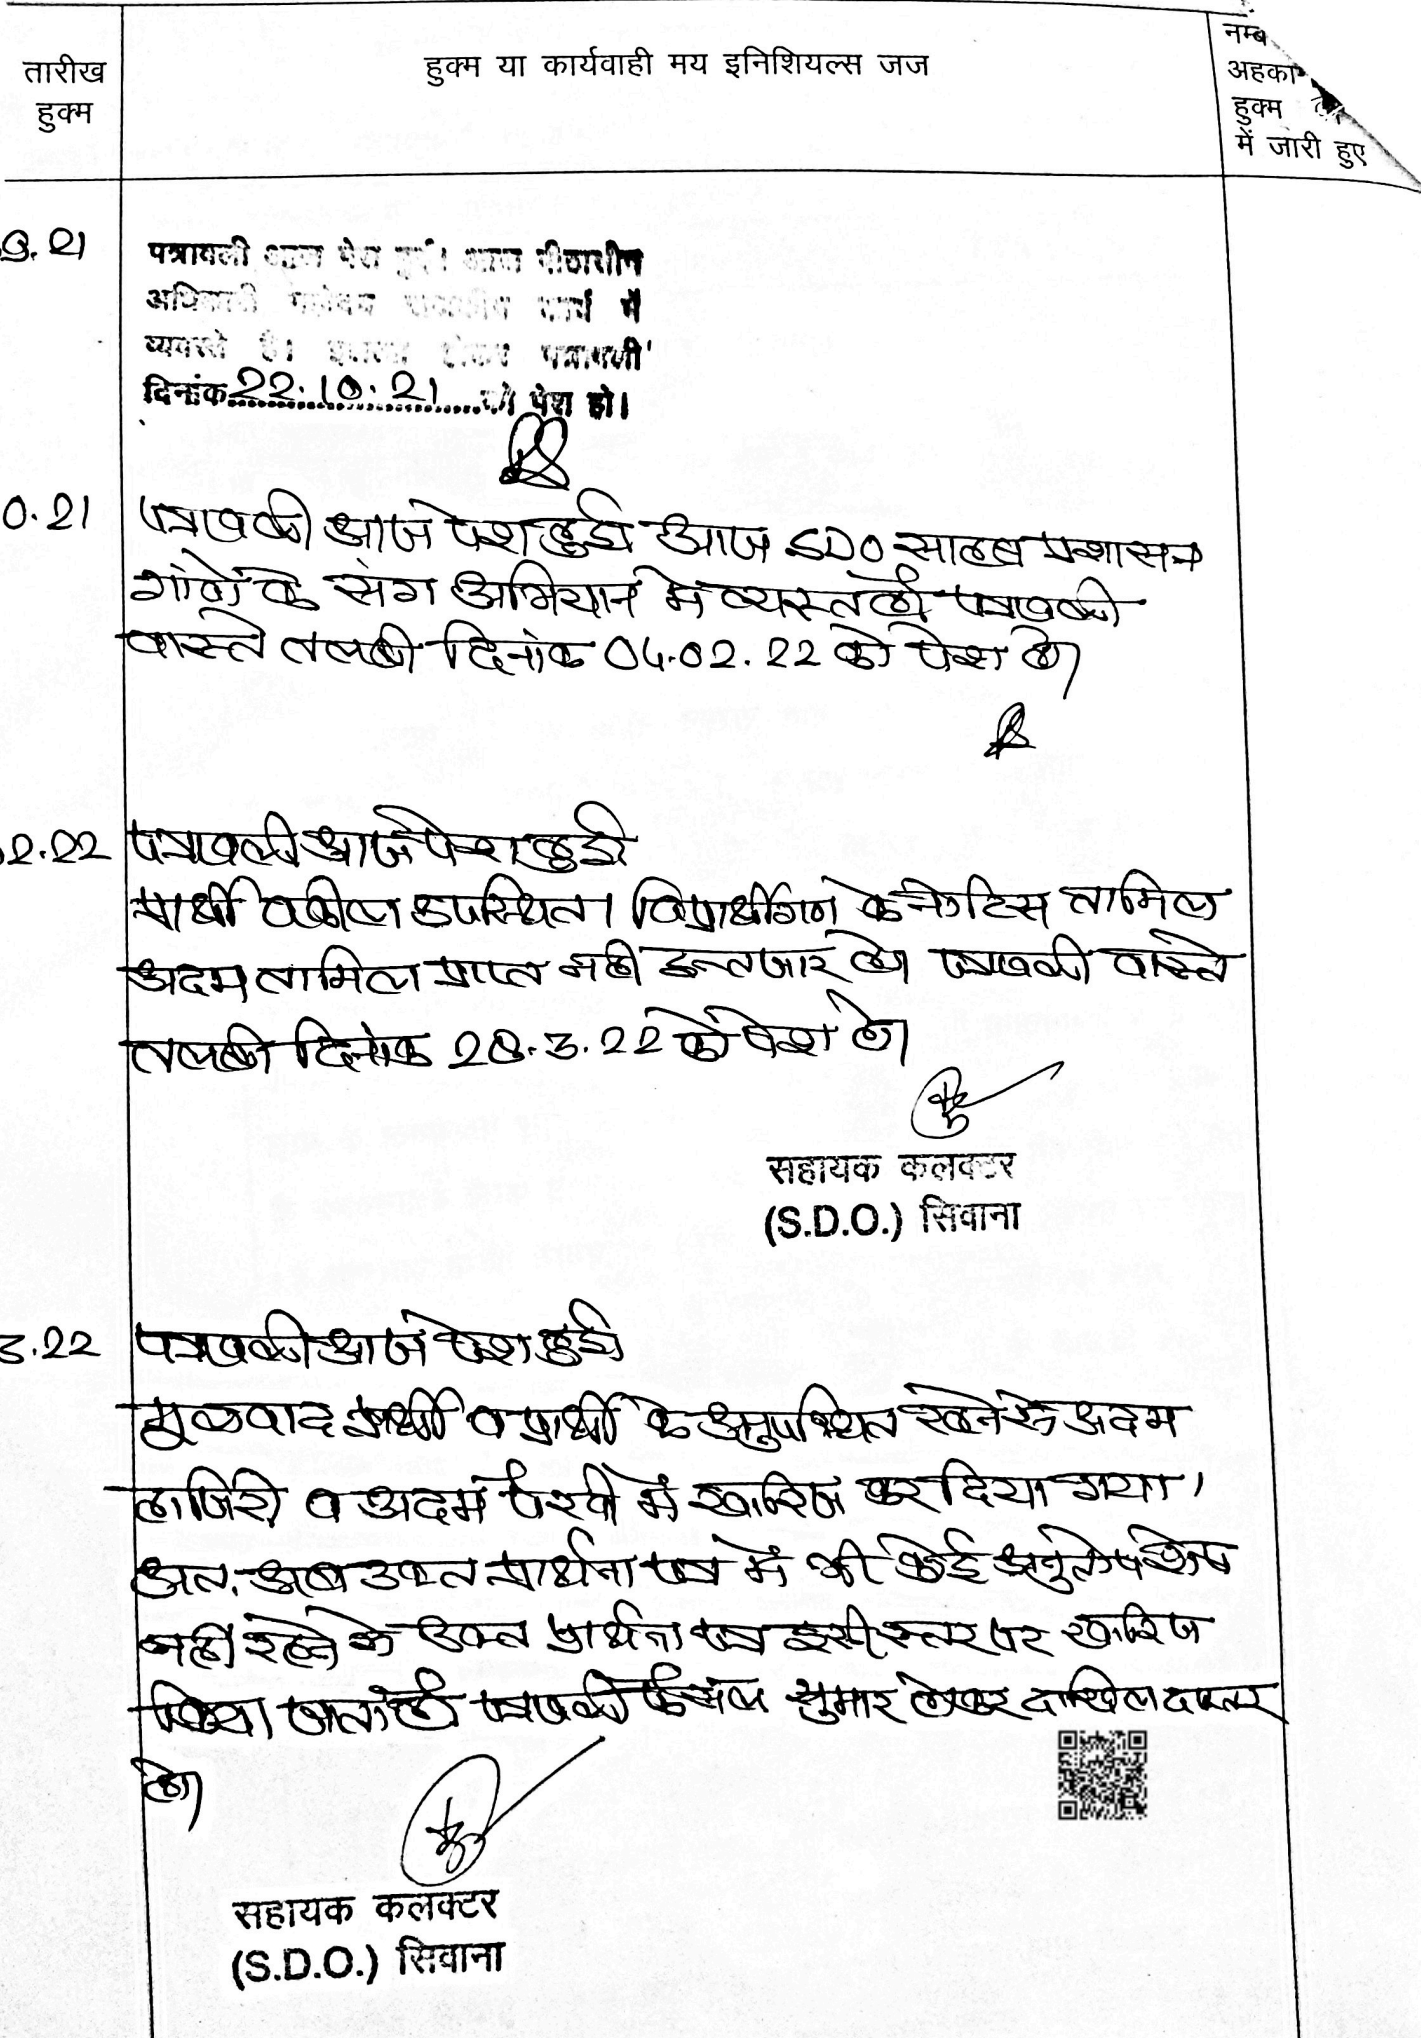 तारीख
हुक्म
हुक्म या कार्यवाही मय इनिशियल्स जज
नम्ब
अहका
हुक्म
में जारी हुए
9.21
पत्रावली आज पेश हुई। आज पीठासीन
अधिकारी महोदय राजकीय कार्य में
व्यस्त है। पत्रावली
दिनांक 22.10.21 को पेश हो।
0.21
पत्रावली आज पेश हुई। आज SDO साहब प्रशासन
गांवों के संग अभियान में व्यस्त है। पत्रावली
वास्ते तलबी दिनांक 04.02.22 को पेश हो।
02.22
पत्रावली आज पेश हुई।
प्रार्थी वकील उपस्थित। विप्रार्थीगण के नोटिस तामिल
अदम तामिल प्राप्त नहीं इन्तजार हो। पत्रावली वास्ते
तलबी दिनांक 28.3.22 को पेश हो।
सहायक कलक्टर
(S.D.O.) सिवाना
3.22
पत्रावली आज पेश हुई।
मूलवाद प्रार्थी व प्रार्थी के अनुपस्थित रहने से अदम
हाजिरी व अदम पैरवी में खारिज कर दिया गया।
अतः अब उक्त प्रार्थना पत्र में भी कोई अनुतोष शेष
नहीं रहने से उक्त प्रार्थना पत्र इसी स्तर पर खारिज
किया जाता है। पत्रावली फैसल शुमार होकर दाखिल दफ्तर
हो।
सहायक कलक्टर
(S.D.O.) सिवाना